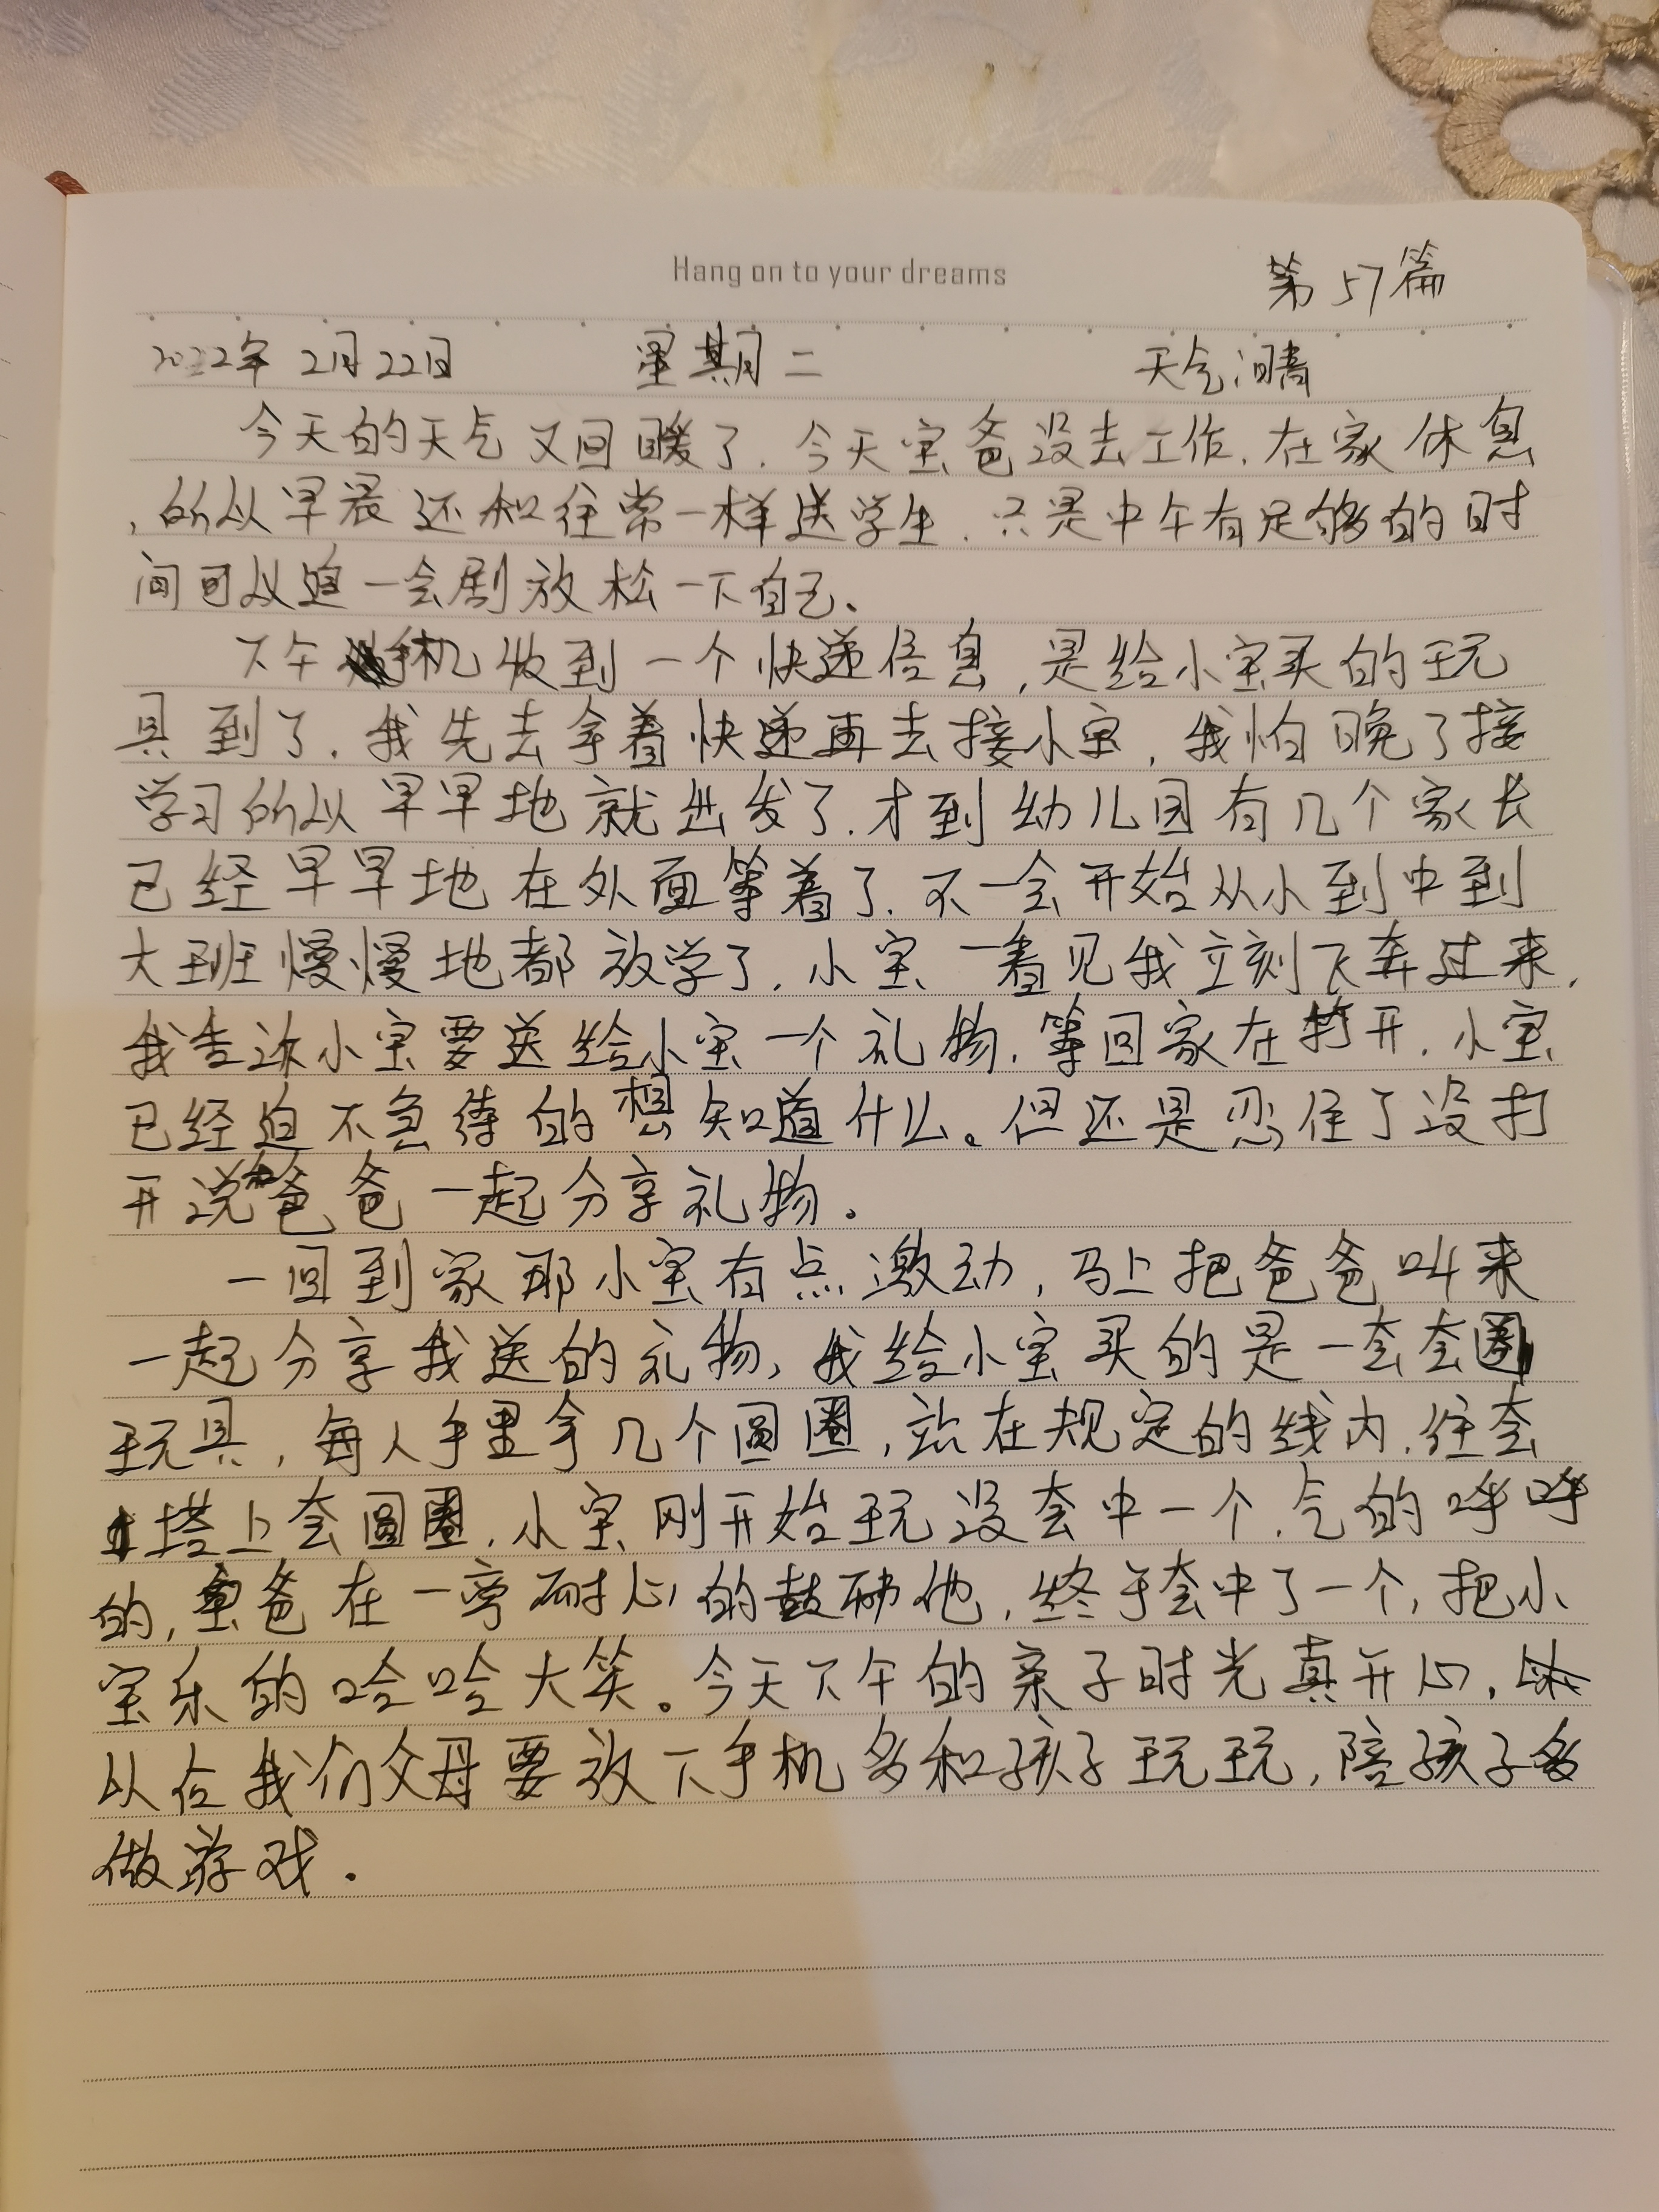 Hang on to your dreams
第57篇
2022年2月22日 星期二 天气:晴
今天的天气又回暖了.今天宝爸没去工作.在家休息
,所以早晨还和往常一样送学生.只是中午有足够的时
间可以追一会剧放松一下自己。
下午手机收到一个快递信息,是给小宝买的玩
具到了.我先去拿着快递再去接小宝,我怕晚了接
学习所以早早地就出发了.才到幼儿园有几个家长
已经早早地在外面等着了.不一会开始从小到中到
大班慢慢地都放学了.小宝一看见我立刻飞奔过来,
我告诉小宝要送给小宝一个礼物.等回家在打开.小宝
已经迫不急待的想知道什么。但还是忍住了没打
开说和爸爸一起分享礼物。
一回到家那小宝有点激动,马上把爸爸叫来
一起分享我送的礼物,我给小宝买的是一套套圈
玩具,每人手里拿几个圆圈,站在规定的线内.往套
塔上套圆圈.小宝刚开始玩没套中一个.气的呼呼
的,宝爸在一旁耐心的鼓励他,终于套中了一个,把小
宝乐的哈哈大笑。今天下午的亲子时光真开心.
以后我们父母要放下手机多和孩子玩玩,陪孩子多
做游戏.